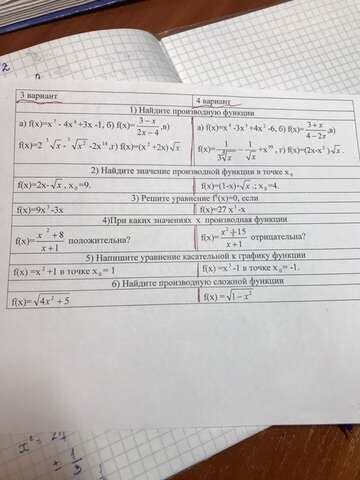 3 вариант
4 вариант
1) Найдите производную функции
а) f(x)=x⁵ - 4x⁴ +3x -1, б) f(x)=(3−x)/(2x−4),в)
f(x)=2·³√x - ³√x² -2x¹⁴,г) f(x)=(x² +2x)√x
а) f(x)=x⁴ -3x³ +4x² -6, б) f(x)=(3+x)/(4−2x),в)
f(x)=1/(3√x) − 1/√x +x³⁶, г) f(x)=(2x-x²)√x.
2) Найдите значение производной функции в точке x₀
f(x)=2x-√x, x₀=9.
f(x)=(1-x)·√x ; x₀=4.
3) Решите уравнение f'(x)=0, если
f(x)=9x³-3x
f(x)=27 x³-x
4)При каких значениях x производная функции
f(x)=(x²+8)/(x+1) положительна?
f(x)=(x²+15)/(x+1) отрицательна?
5) Напишите уравнение касательной к графику функции
f(x) =x²+1 в точке x₀= 1
f(x) =x³-1 в точке x₀= -1.
6) Найдите производную сложной функции
f(x)=√(4x²+5)
f(x) =√(1−x²)
x² = 27
± 1/3